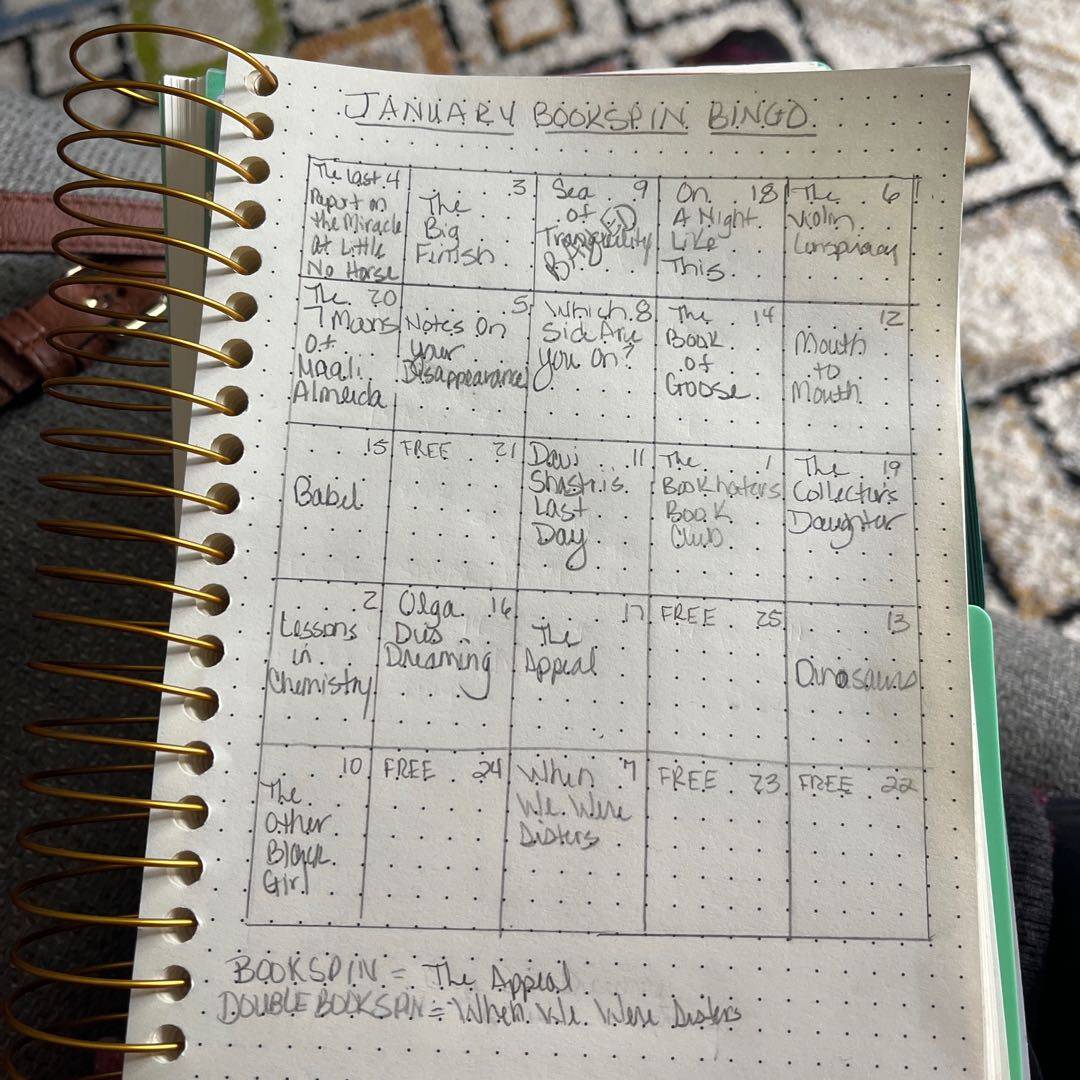 JANUARY BOOKSPIN BINGO
The Last 4
Report on
the Miracle
At Little
No Horse
3
The
Big
Finish
Sea 9
of
Tranquility
On 18
A Night
Like
This
The 6
Violin
Conspiracy
The 20
7 Moons
of
Maali
Almeida
5
Notes On
Your
Disappearance
Which 8
Side Are
You On?
The 14
Book
of
Goose
12
Mouth
to
Mouth
15
Babel
FREE 21
Devi 11
Shastri's
Last
Day
The 1
Bookhaters
Book
Club
The 19
Collector's
Daughter
2
Lessons
in
Chemistry
Olga 16
Dies
Dreaming
17
The
Appeal
FREE 25
13
Dinosaurs
10
The
Other
Black
Girl
FREE 24
When 7
We Were
Sisters
FREE 23
FREE 22
BOOKSPIN = The Appeal
DOUBLE BOOKSPIN = When We Were Sisters